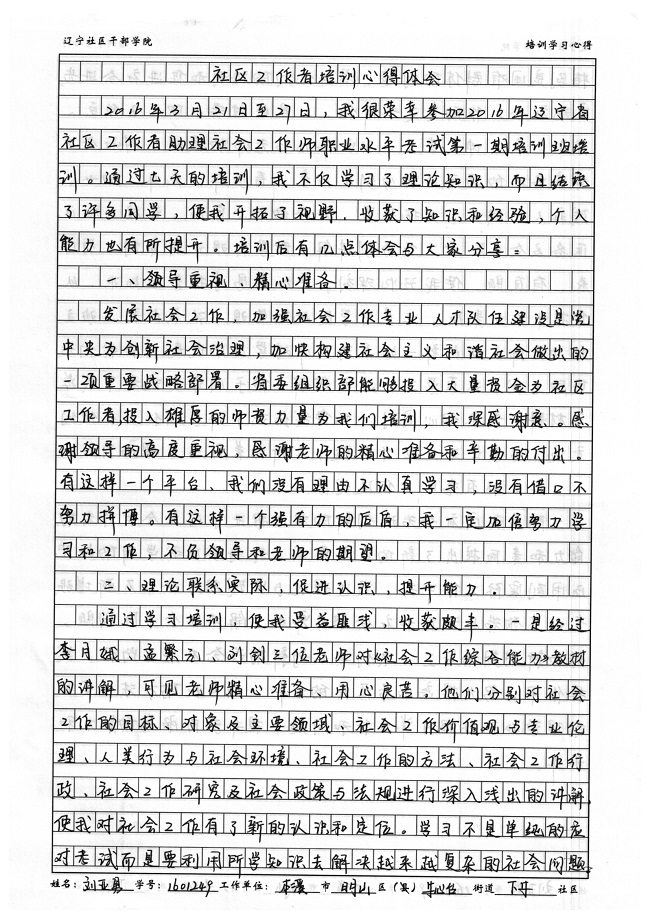 辽宁社区干部学院 培训学习心得
社区工作者培训心得体会
2016年3月21日至27日，我很荣幸参加2016年辽宁省
社区工作者助理社会工作师职业水平考试第一期培训班培
训。通过七天的培训，我不仅学习了理论知识，而且结识
了许多同学，使我开拓了视野，收获了知识和经验，个人
能力也有所提升。培训后有几点体会与大家分享：
一、领导重视、精心准备。
发展社会工作，加强社会工作专业人才队伍建设是党
中央为创新社会治理，加快构建社会主义和谐社会做出的
一项重要战略部署。省委组织部能够投入大量资金为社区
工作者，投入雄厚的师资力量为我们培训，我深感谢意。感
谢领导的高度重视，感谢老师的精心准备和辛勤的付出。
有这样一个平台、我们没有理由不认真学习，没有借口不
努力拼博。有这样一个强有力的后盾，我一定加倍努力学
习和工作，不负领导和老师的期望。
二、理论联系实际，促进认识，提升能力。
通过学习培训，使我受益匪浅，收获颇丰。一是经过
李月娥、孟繁元、刘剑三位老师对《社会工作综合能力》教材
的讲解，可见老师精心准备、用心良苦。他们分别对社会
工作的目标、对象及主要领域、社会工作价值观与专业伦
理、人类行为与社会环境、社会工作的方法、社会工作行
政、社会工作研究及社会政策与法规进行深入浅出的讲解，
使我对社会工作有了新的认识和定位。学习不是单纯的应
对考试而是要利用所学知识去解决越来越复杂的社会问题。
姓名： 刘亚 学号： 1601249 工作单位： 本溪 市 明山 区（县） 牛心台 街道 下牛 社区